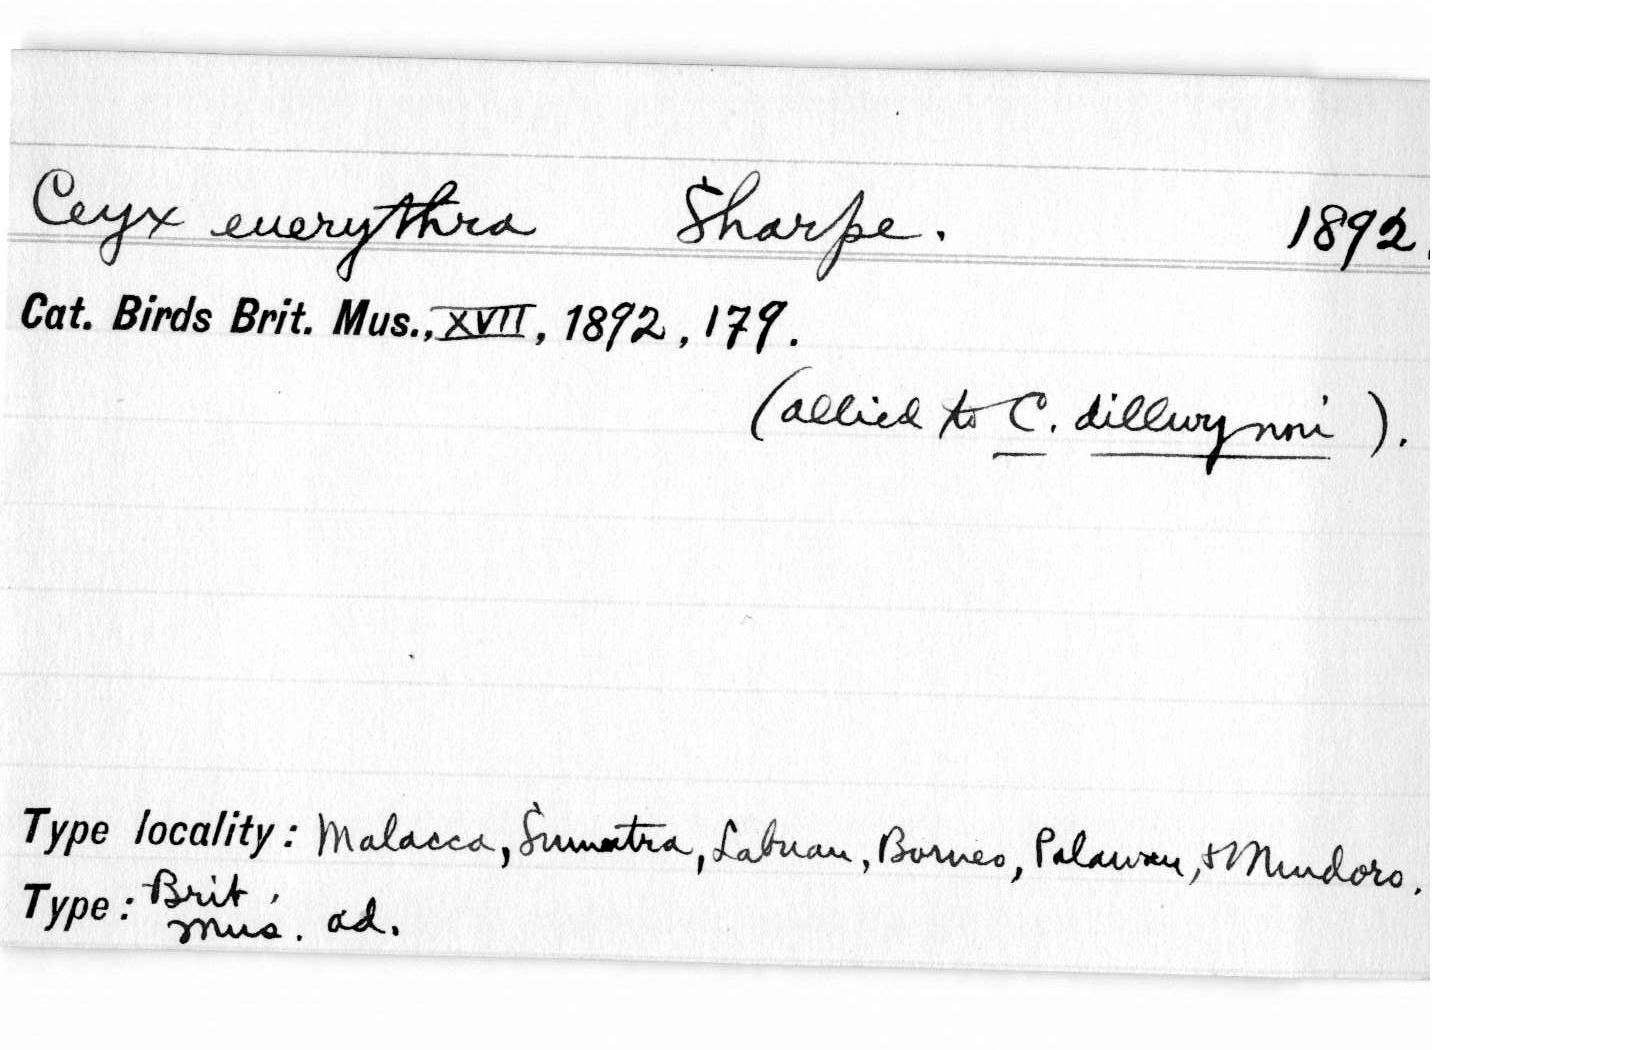 Ceyx euerythra Sharpe. 1892.
Cat. Birds Brit. Mus., XVII, 1892, 179.
(allied to C. dillwynni).
Type locality: Malacca, Sumatra, Labuan, Borneo, Palawan, & Mindoro.
Type: Brit. Mus. ad.